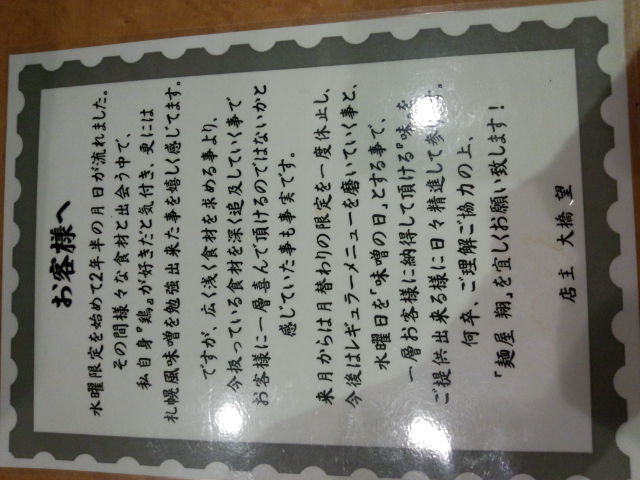 お客様へ
水曜限定を始めて2年半の月日が流れました。
その間様々な食材と出会う中で、
私自身『鶏』が好きだと気付き、更には
札幌風味噌を勉強出来た事を嬉しく感じてます。
ですが、広く浅く食材を求める事より、
今扱っている食材を深く追及していく事で
お客様に一層喜んで頂けるのではないかと
感じていた事も事実です。
来月からは月替わりの限定を一度休止し、
今後はレギュラーメニューを磨いていく事と、
水曜日を『味噌の日』とする事で、
一層お客様に納得して頂ける『味』を
ご提供出来る様に日々精進して参ります。
何卒、ご理解ご協力の上、
『麺屋 翔』を宜しくお願い致します！
店主 大橋 望